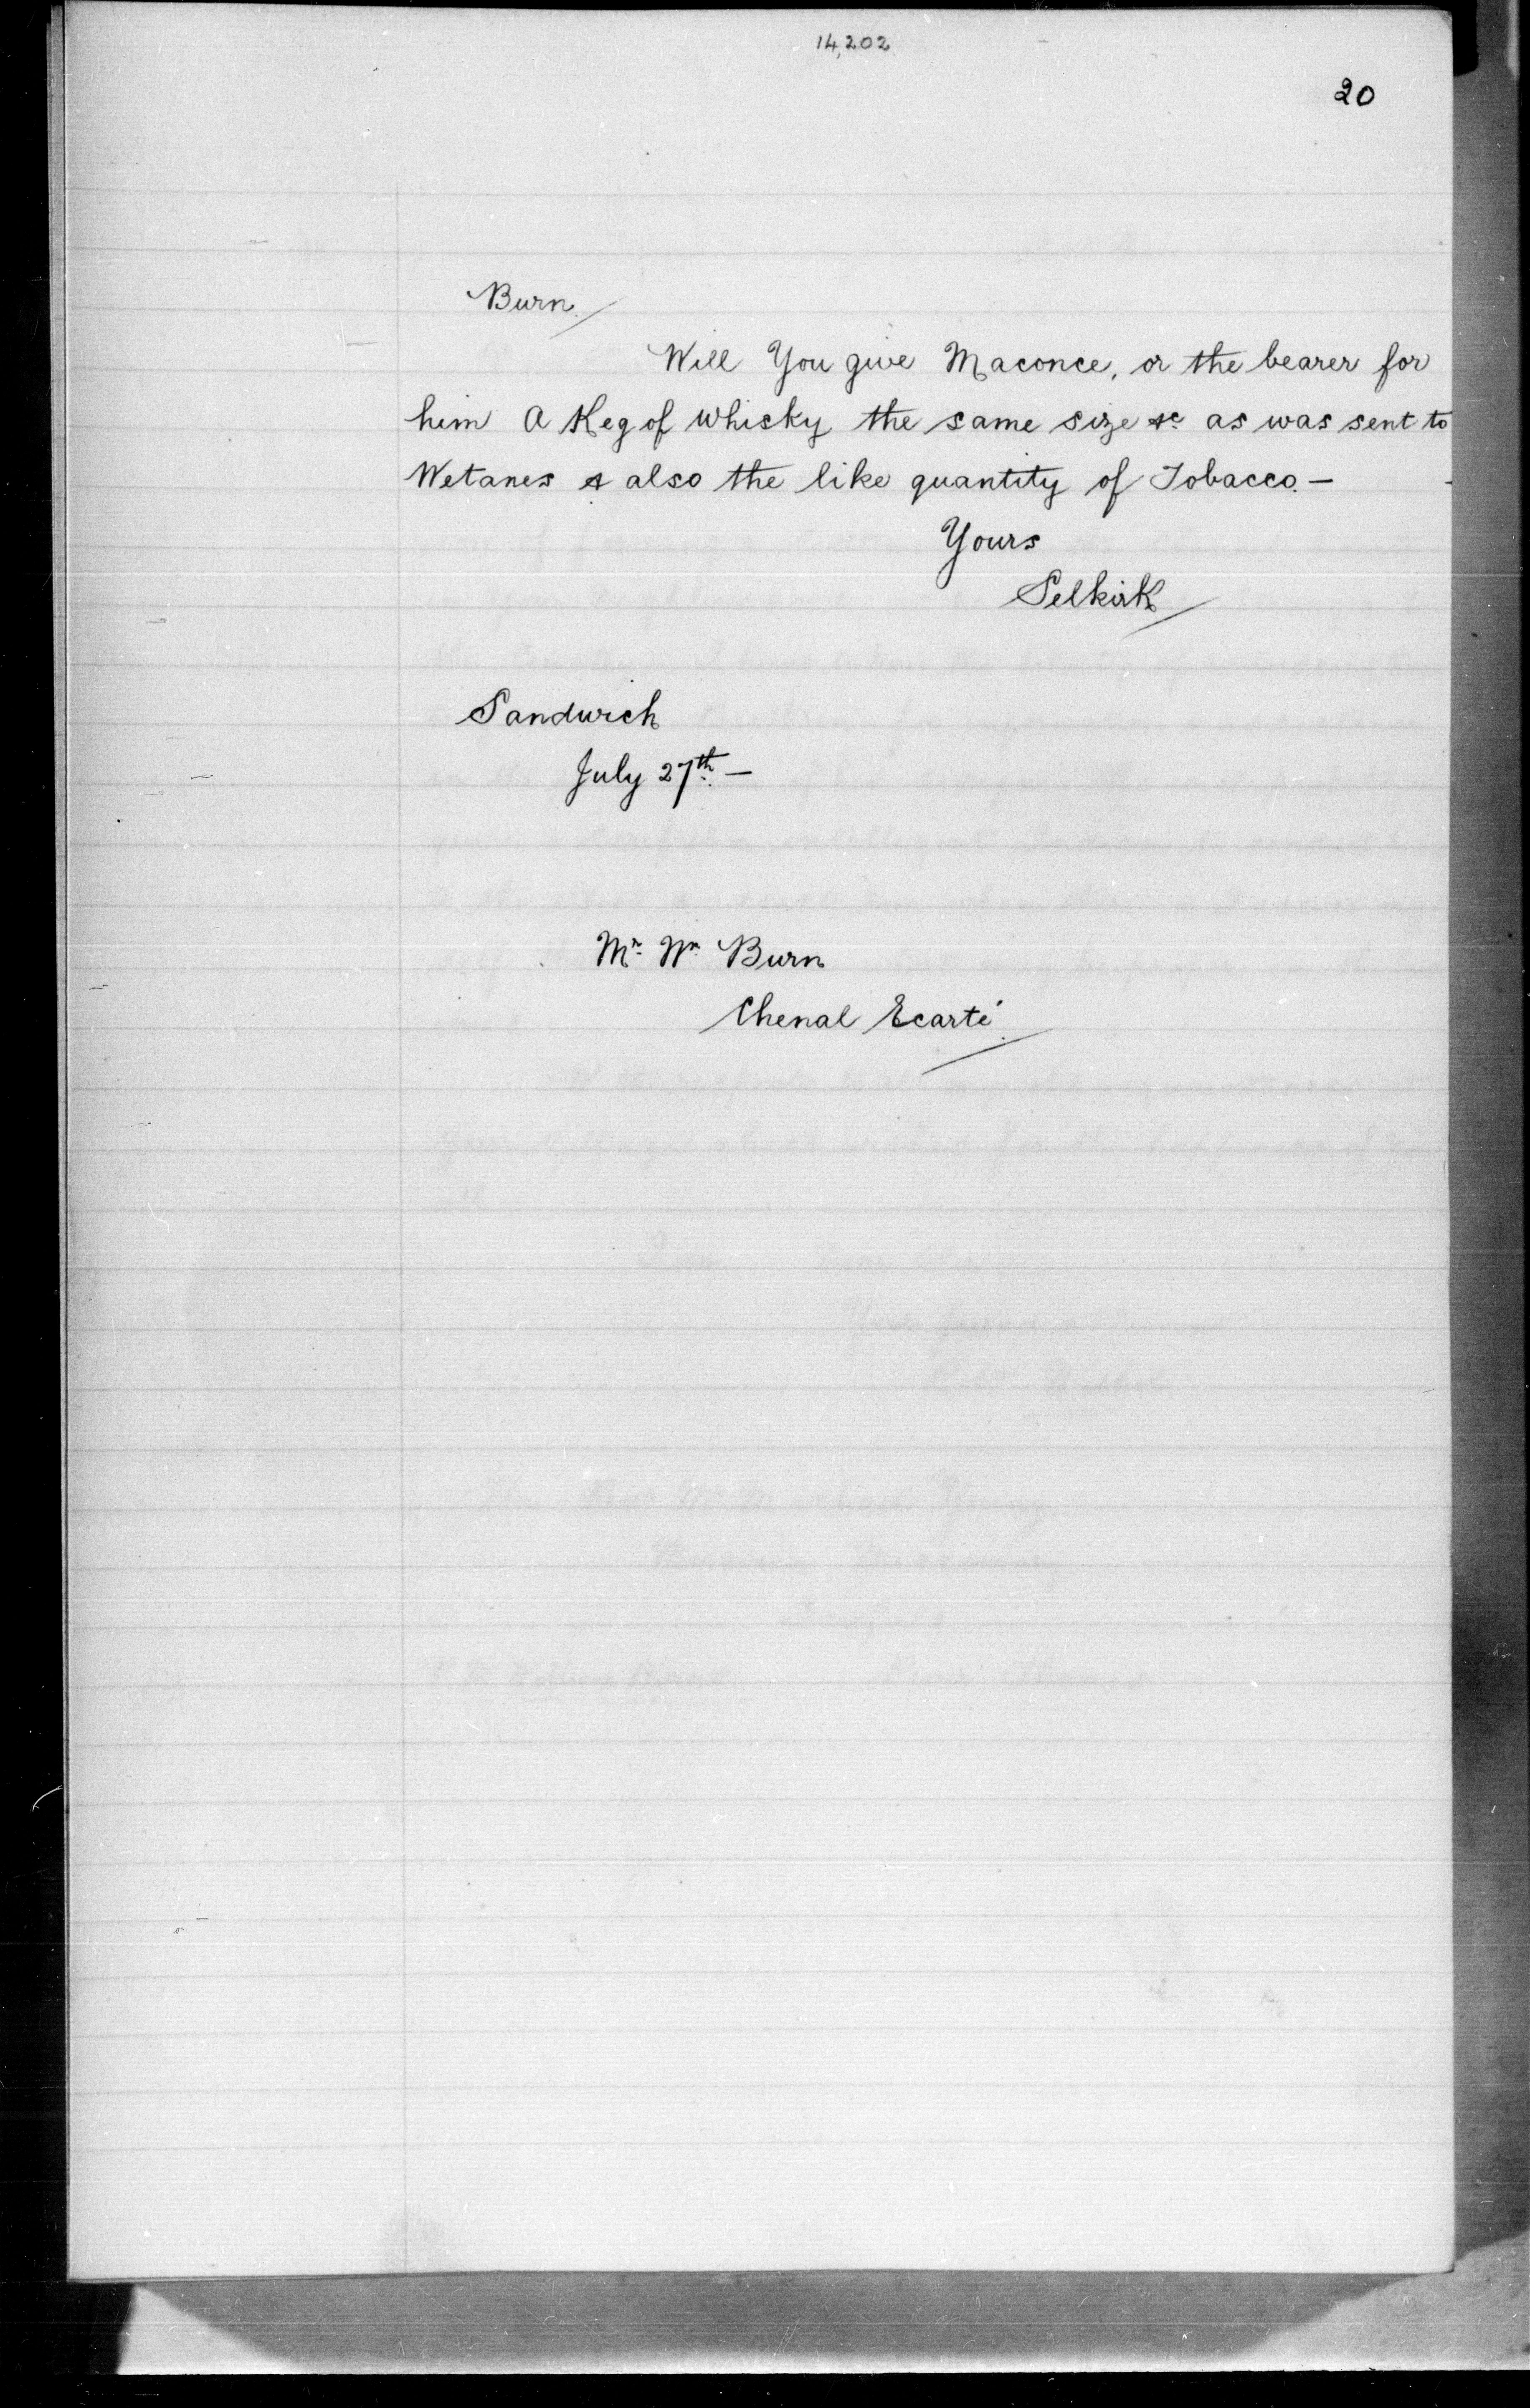 14,202
20
Burn.
Will You give Maconce, or the bearer for
him A Keg of Whisky the same size &c as was sent to
Wetanes & also the like quantity of Tobacco.—
Yours
Selkirk
Sandwich
July 27th.—
Mr. Wm. Burn
Chenal Ecarté.